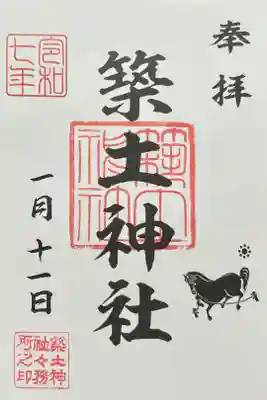 奉拝
築土神社
築土神社
令和七年
一月十一日
築土神
社々務
所之印